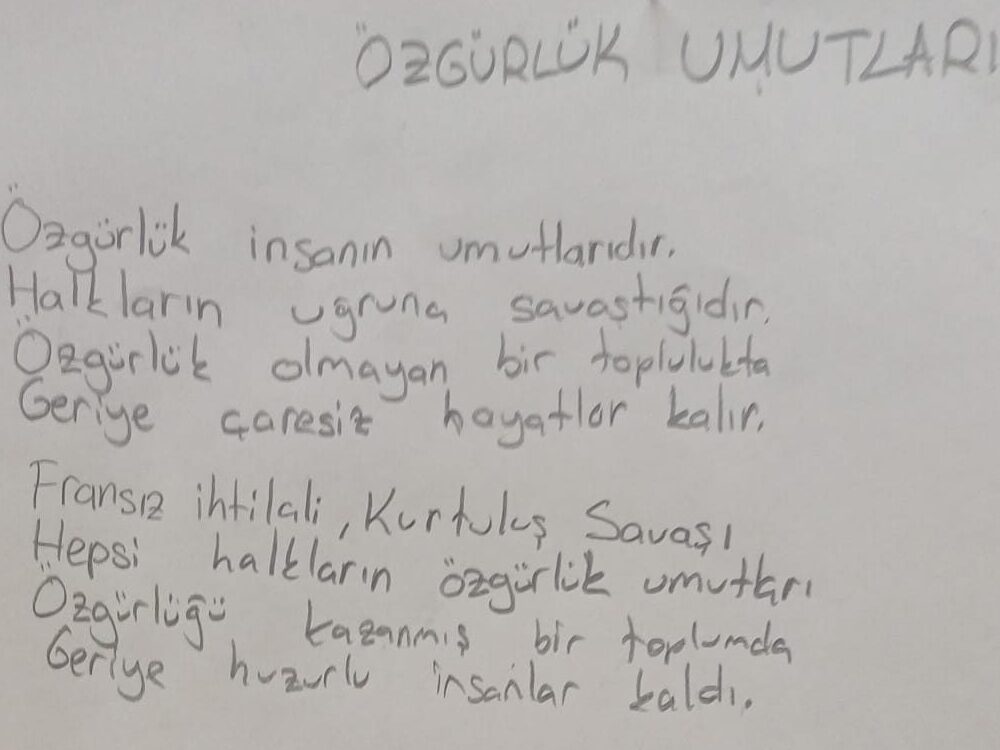 ÖZGÜRLÜK UMUTLARI
Özgürlük insanın umutlarıdır.
Halkların uğruna savaştığıdır.
Özgürlük olmayan bir toplulukta
Geriye çaresiz hayatlar kalır.
Fransız ihtilali, Kurtuluş Savaşı
Hepsi halkların özgürlük umutları
Özgürlüğü kazanmış bir toplumda
Geriye huzurlu insanlar kaldı.